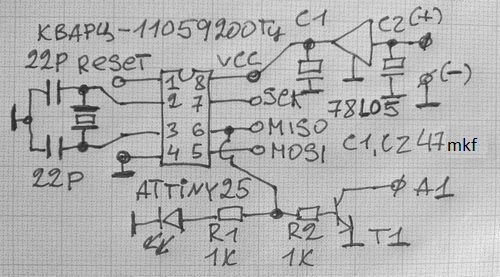 КВАРЦ-11059200Гц
C1
C2 (+)
22P RESET
VCC
1 8
2 7 SCK
(-)
78L05
3 6 MISO
4 5 MOSI
C1, C2 47 mkf
22P
ATTINY25
A1
R1 R2 T1
1K 1K